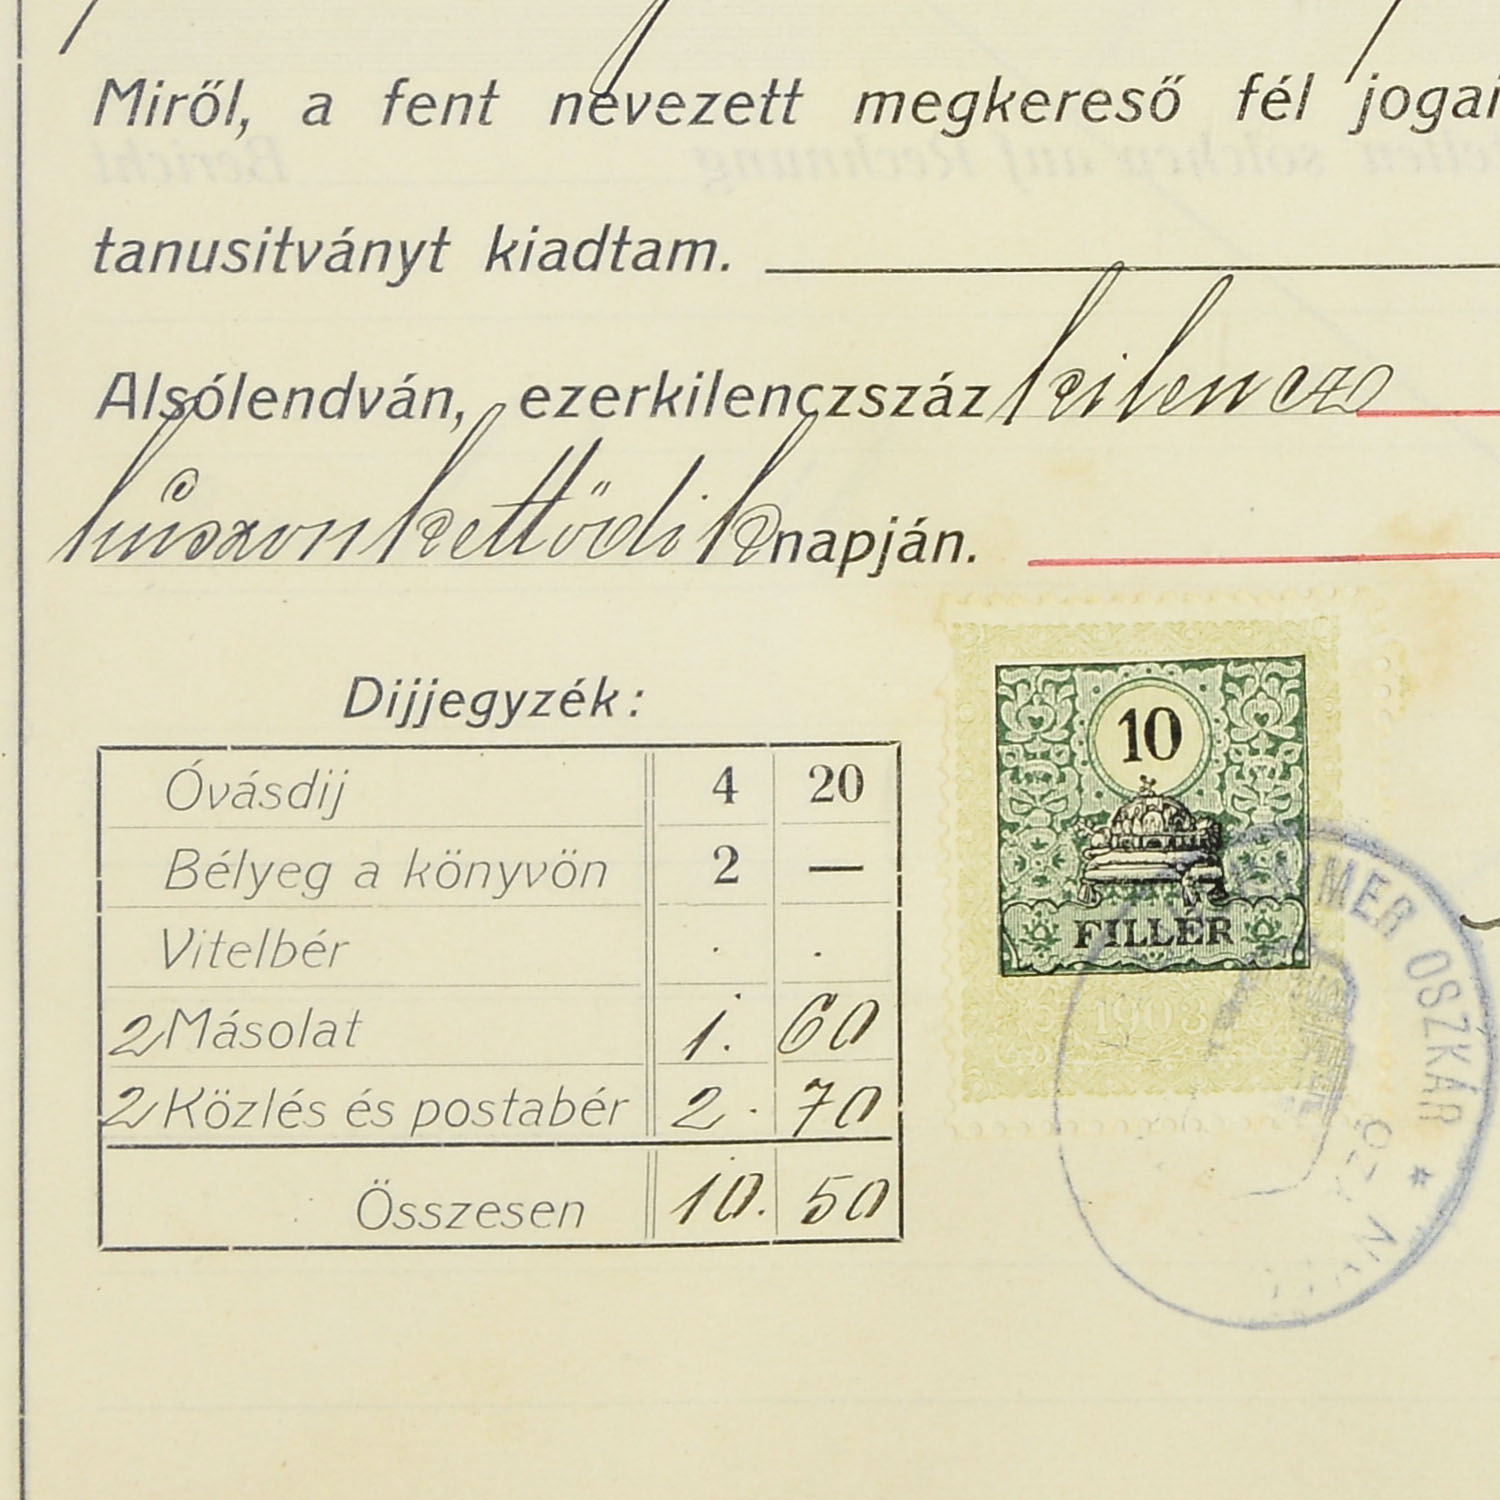 Miről, a fent nevezett megkereső fél jogai
tanusitványt kiadtam.
Alsólendván, ezerkilenczszáz kilencz
húszonkettődik napján.
Dijjegyzék:
Óvásdij 4 20
Bélyeg a könyvön 2 —
Vitelbér . .
2 Másolat 1. 60
2 Közlés és postabér 2. 70
Összesen 10. 50
10
FILLÉR
1903
OSZKÁR *